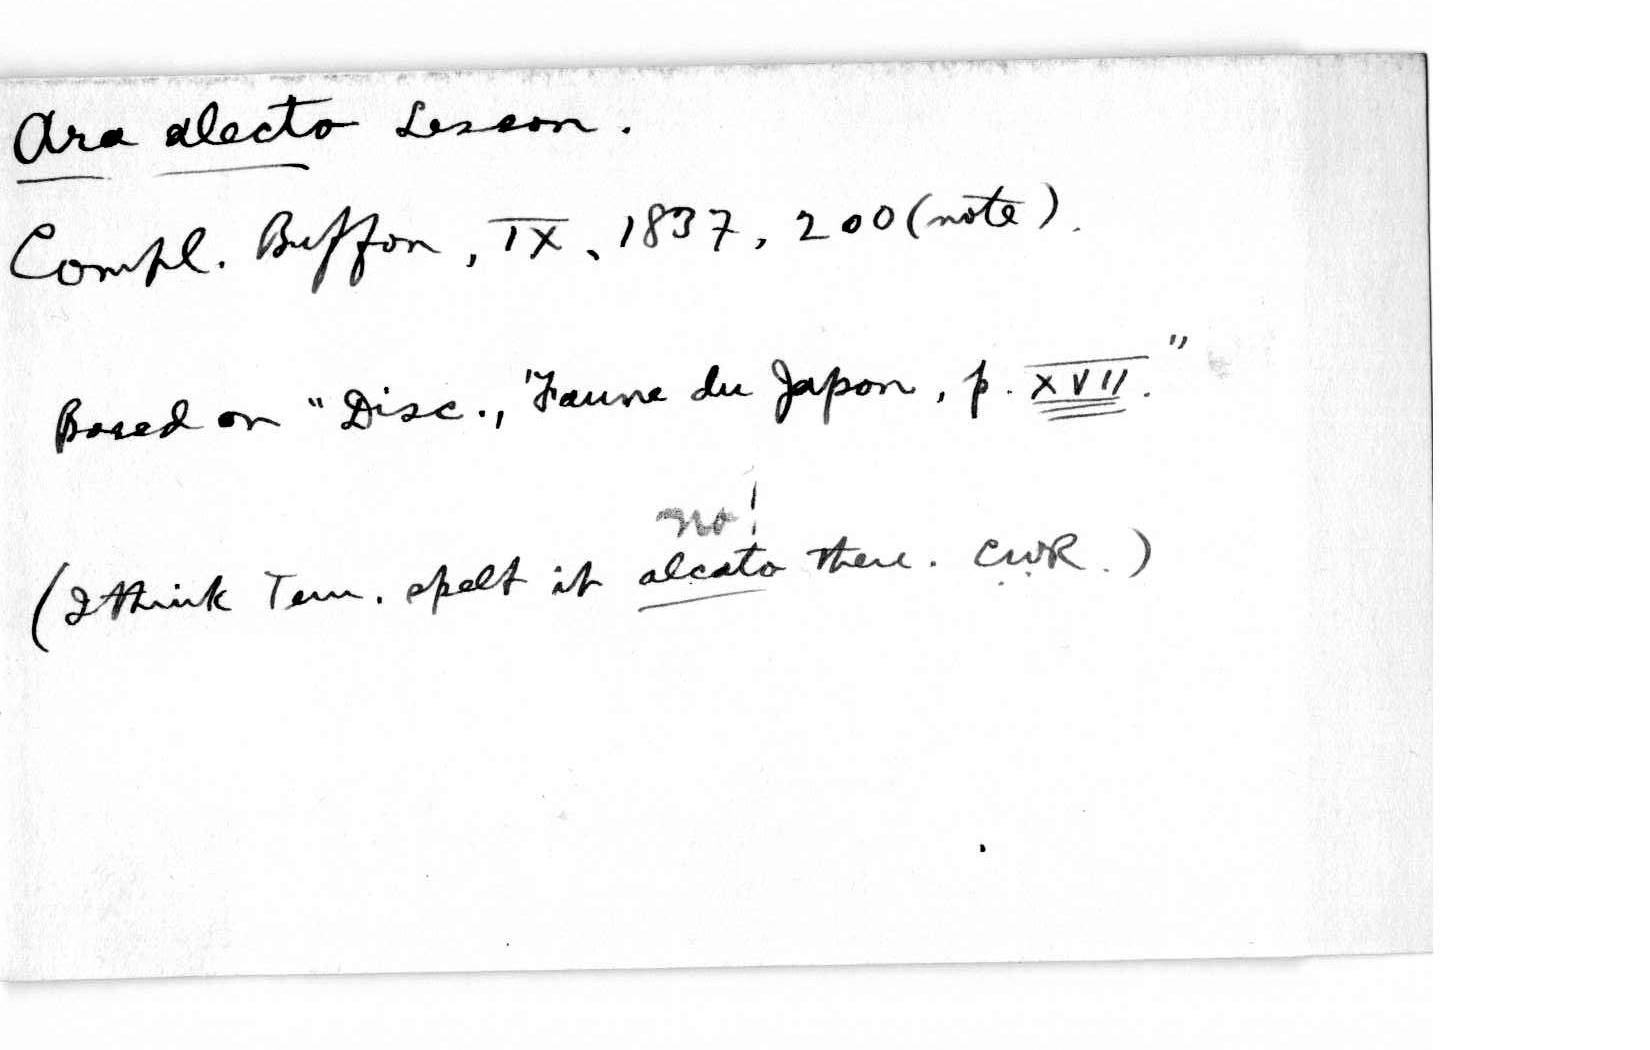 Ara alecto Lesson.
Compl. Buffon, IX, 1837, 200 (note).
Based on "Disc., 'Faune du Japon, p. XVII."
no!
(I think Tem. spelt it alcato there. CWR.)